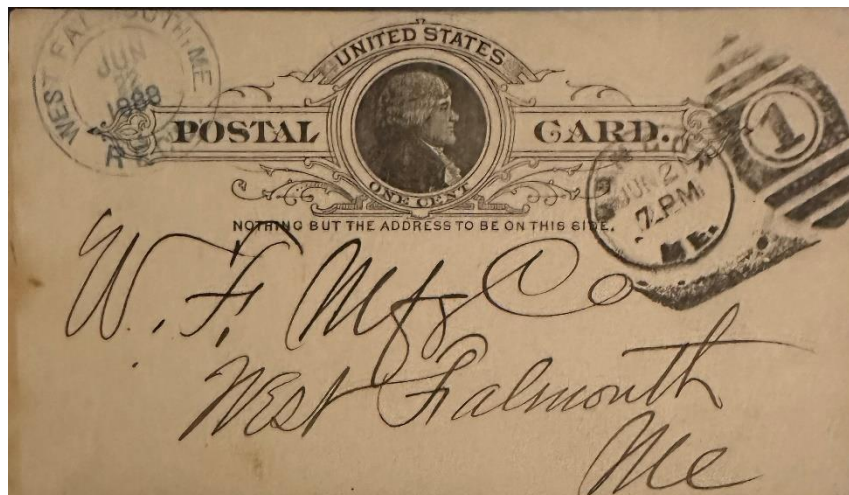 WEST FALMOUTH, ME
JUN
1888
UNITED STATES
POSTAL CARD.
ONE CENT
NOTHING BUT THE ADDRESS TO BE ON THIS SIDE.
JUN 2
7 PM
ME.
1
W. F. Mfg Co
West Falmouth
Me